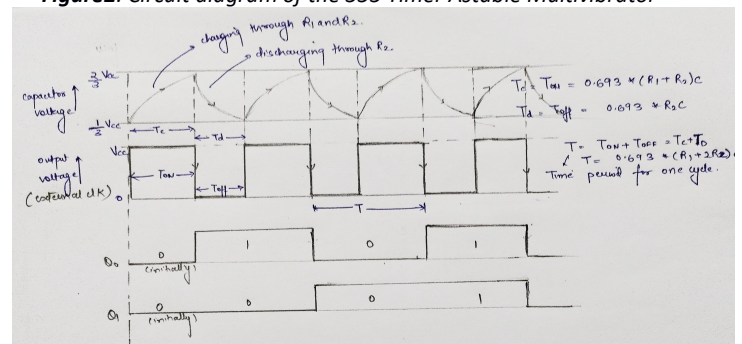 Figure2: Circuit diagram of the 555 Timer Astable Multivibrator
charging through R1 and R2.
discharging through R2.
2/3 Vcc
capacitor voltage
1/3 Vcc
Tc
Td
Tc = TON = 0.693 * (R1 + R2)C
Td = Toff = 0.693 * R2C
T = TON + TOFF = Tc + TD
T = 0.693 * (R1 + 2R2)
Time period for one cycle.
output voltage
(external clk)
Vcc
0
TON
Toff
T
Q0
0
(initially)
1
0
1
Q1
0
(initially)
0
0
1